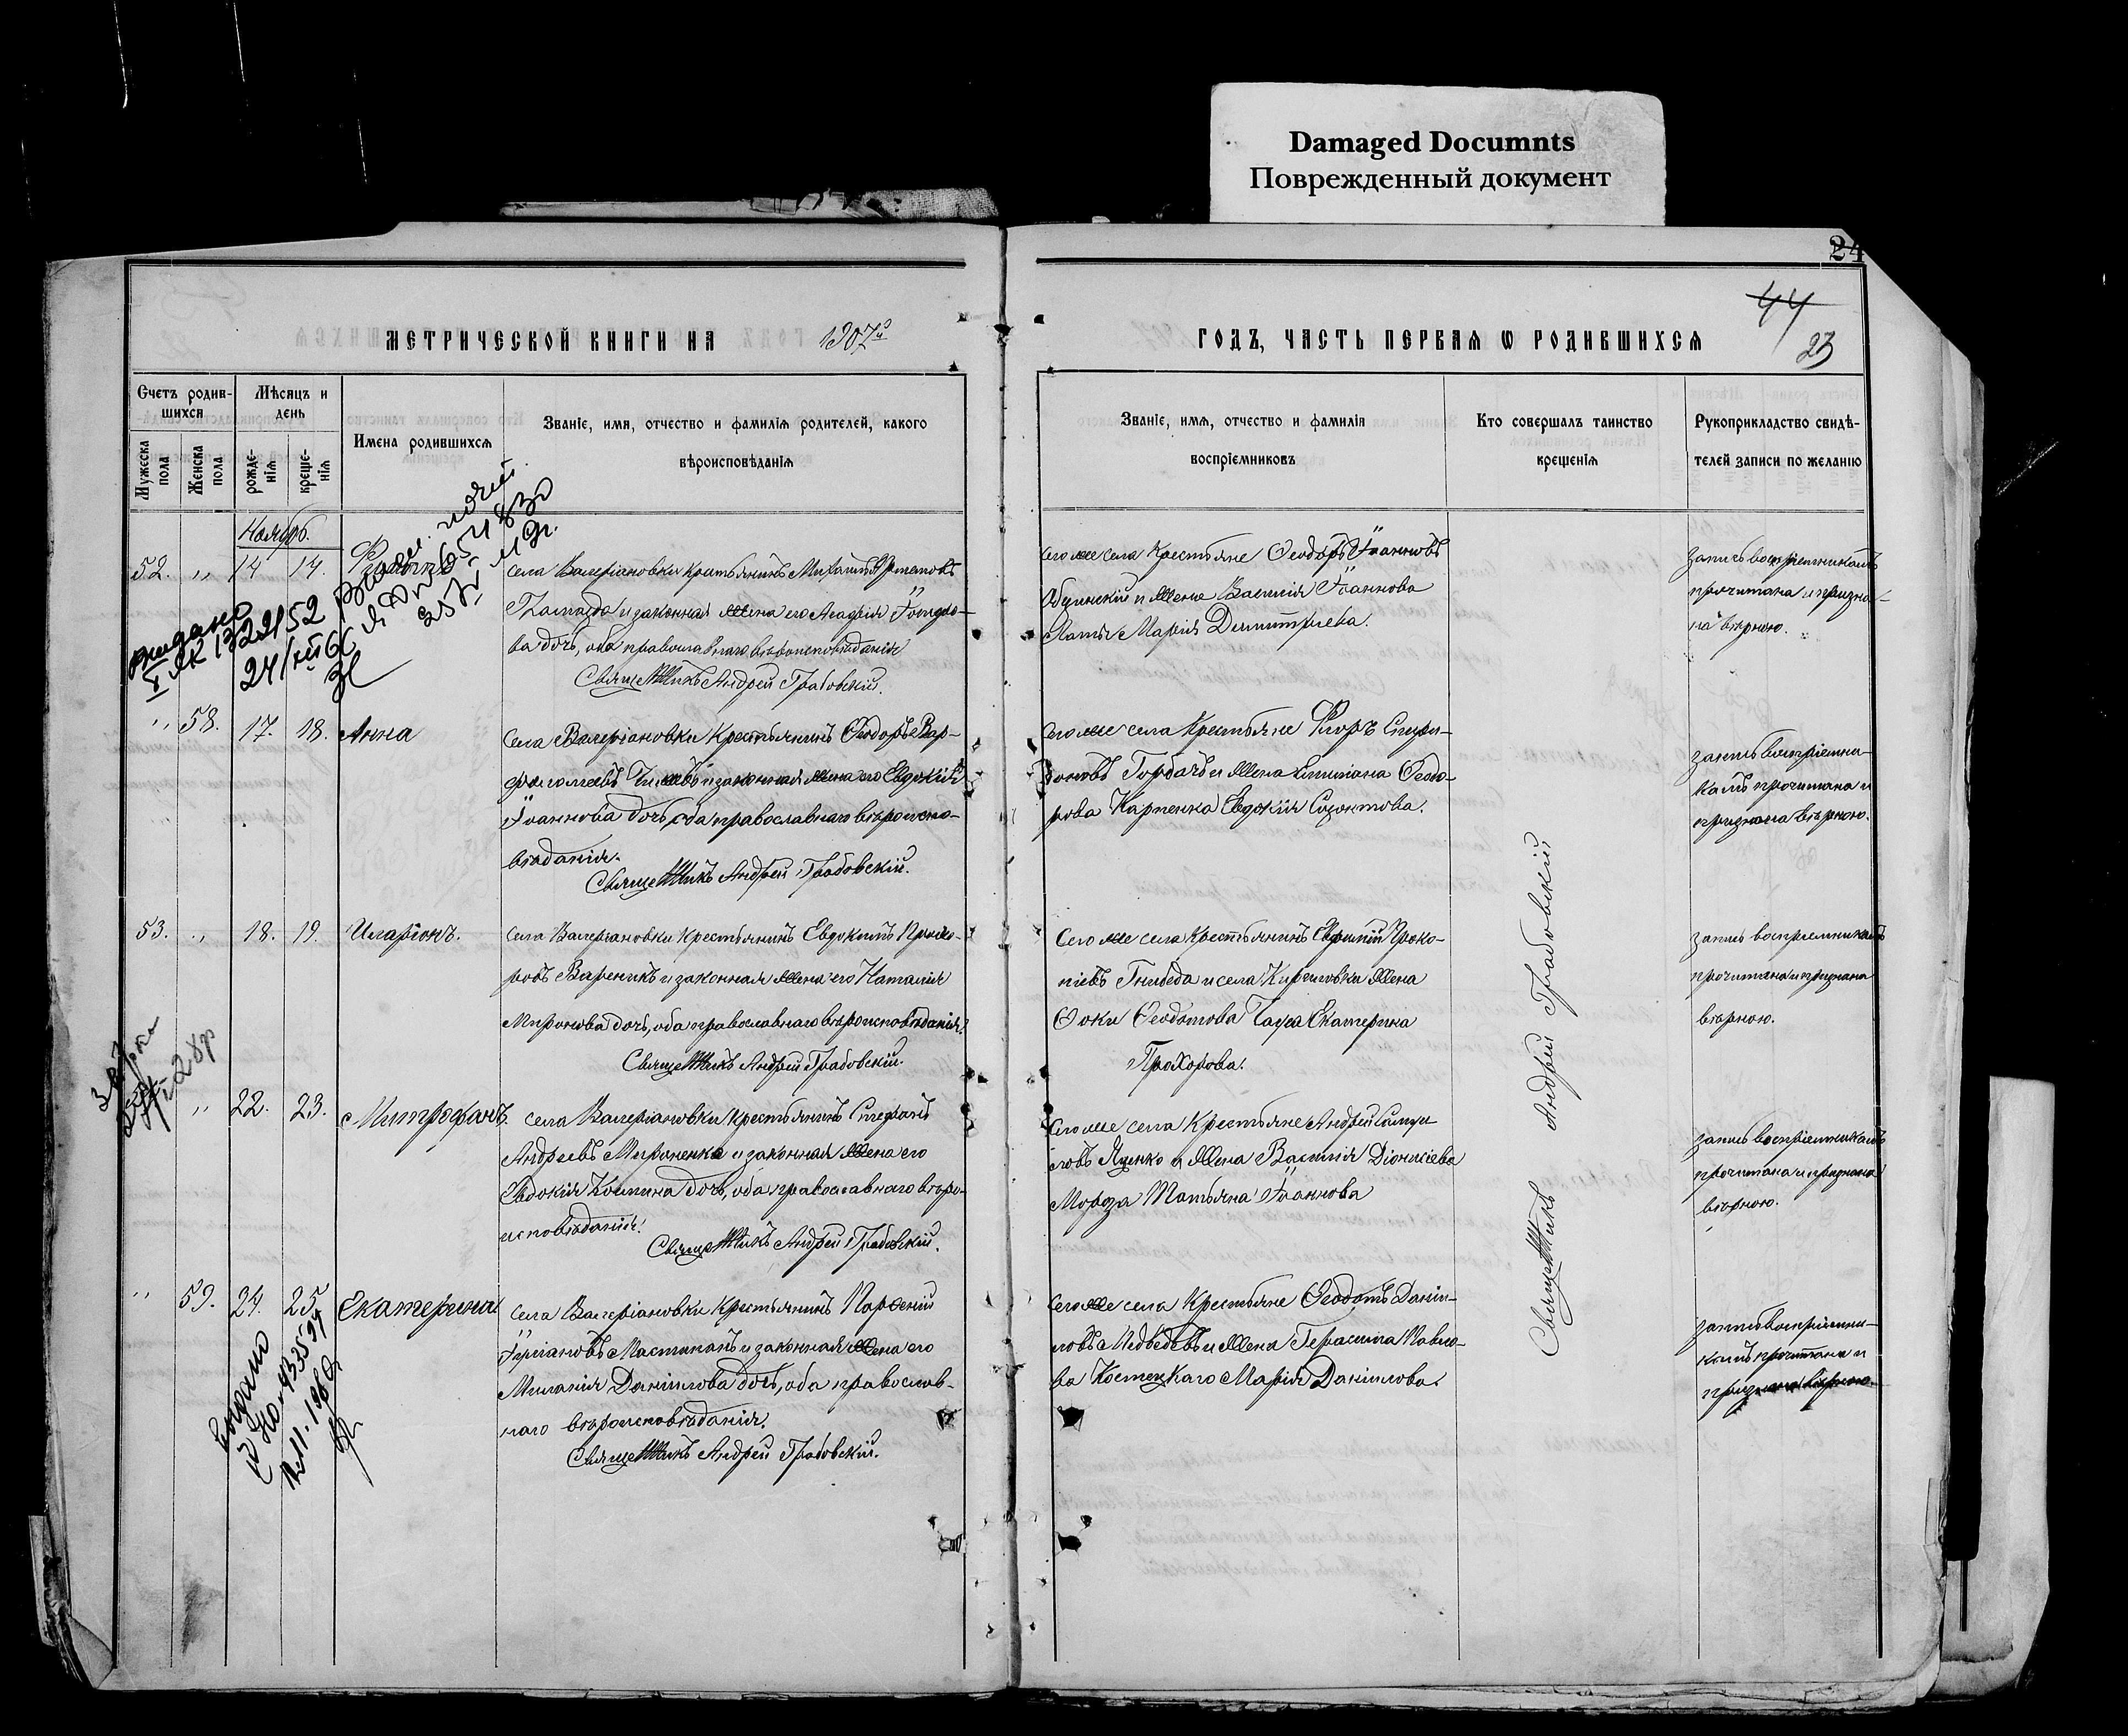 Damaged Documnts
Поврежденный документ
24
44
23
МЕТРИЧЕСКОЙ КНИГИ НА 1907й
ГОДЪ, ЧАСТЬ ПЕРВАЯ Ѡ РОДИВШИХСЯ
Счетъ родив-
шихся
Мужеска пола
Женска пола
Мѣсяцъ и
день
рожде-
нія
креще-
нія
Имена родившихся
Званіе, имя, отчество и фамилія родителей, какого
вѣроисповѣданія
Званіе, имя, отчество и фамилія
воспріемниковъ
Кто совершалъ таинство
крещенія
Рукоприкладство свидѣ-
телей записи по желанію
Ноябрь.
52. „ 14 14.
села Валеріановки крестьянинъ Михаилъ
и законная жена его Агафія
ва дочь, оба православнаго вѣроисповѣданія
Священникъ Андрей Грабовскій.
сего же села крестьяне Ѳеодоръ Іоанновъ
и жена Василія Іоаннова
Марія Димитріева.
запись воспріемникамъ
прочитана и призна-
на вѣрною.
„ 58. 17. 18. Анна
села Валеріановки крестьянинъ Ѳеодоръ Вар-
фоломеевъ и законная жена его Евдокія
Іоаннова дочь, оба православнаго вѣроиспо-
вѣданія.
Священникъ Андрей Грабовскій.
сего же села крестьяне Флоръ Спири-
доновъ Горбачъ и жена Емиліана Ѳеодо-
рова Карпенка Евдокія
запись воспріемни-
камъ прочитана и
признана вѣрною.
53. „ 18. 19. Иларіонъ.
села Валеріановки крестьянинъ Евдокимъ Прохо-
ровъ Вареникъ и законная жена его Наталія
Миронова дочь, оба православнаго вѣроисповѣданія.
Священникъ Андрей Грабовскій.
сего же села крестьянинъ Евфимій Проко-
піевъ Гнибеда и села Кириловки жена
Ѳоки Ѳеодотова Екатерина
Прохорова.
запись воспріемникамъ
прочитана и признана
вѣрною.
„ 22. 23. Митрофанъ.
села Валеріановки крестьянинъ Стефанъ
Андреевъ Мироненко и законная жена его
Евдокія Козмина дочь, оба православнаго вѣро-
исповѣданія.
Священникъ Андрей Грабовскій.
сего же села крестьяне Андрей Самуи-
ловъ Яценко и жена Василія Діонисіева
Мороза Татьяна Іоаннова
запись воспріемникамъ
прочитана и признана
вѣрною.
„ 59. 24. 25. Екатерина
села Валеріановки крестьянинъ Парѳеній
и законная жена его
Миланія Даніилова дочь, оба православ-
наго вѣроисповѣданія.
Священникъ Андрей Грабовскій.
сего же села крестьяне Ѳеодотъ Даніи-
ловъ Медведевъ и жена Герасима Павло-
ва Костецкаго Марія Даніилова.
запись воспріемни-
камъ прочитана и
признана вѣрною.
Священникъ Андрей Грабовскій